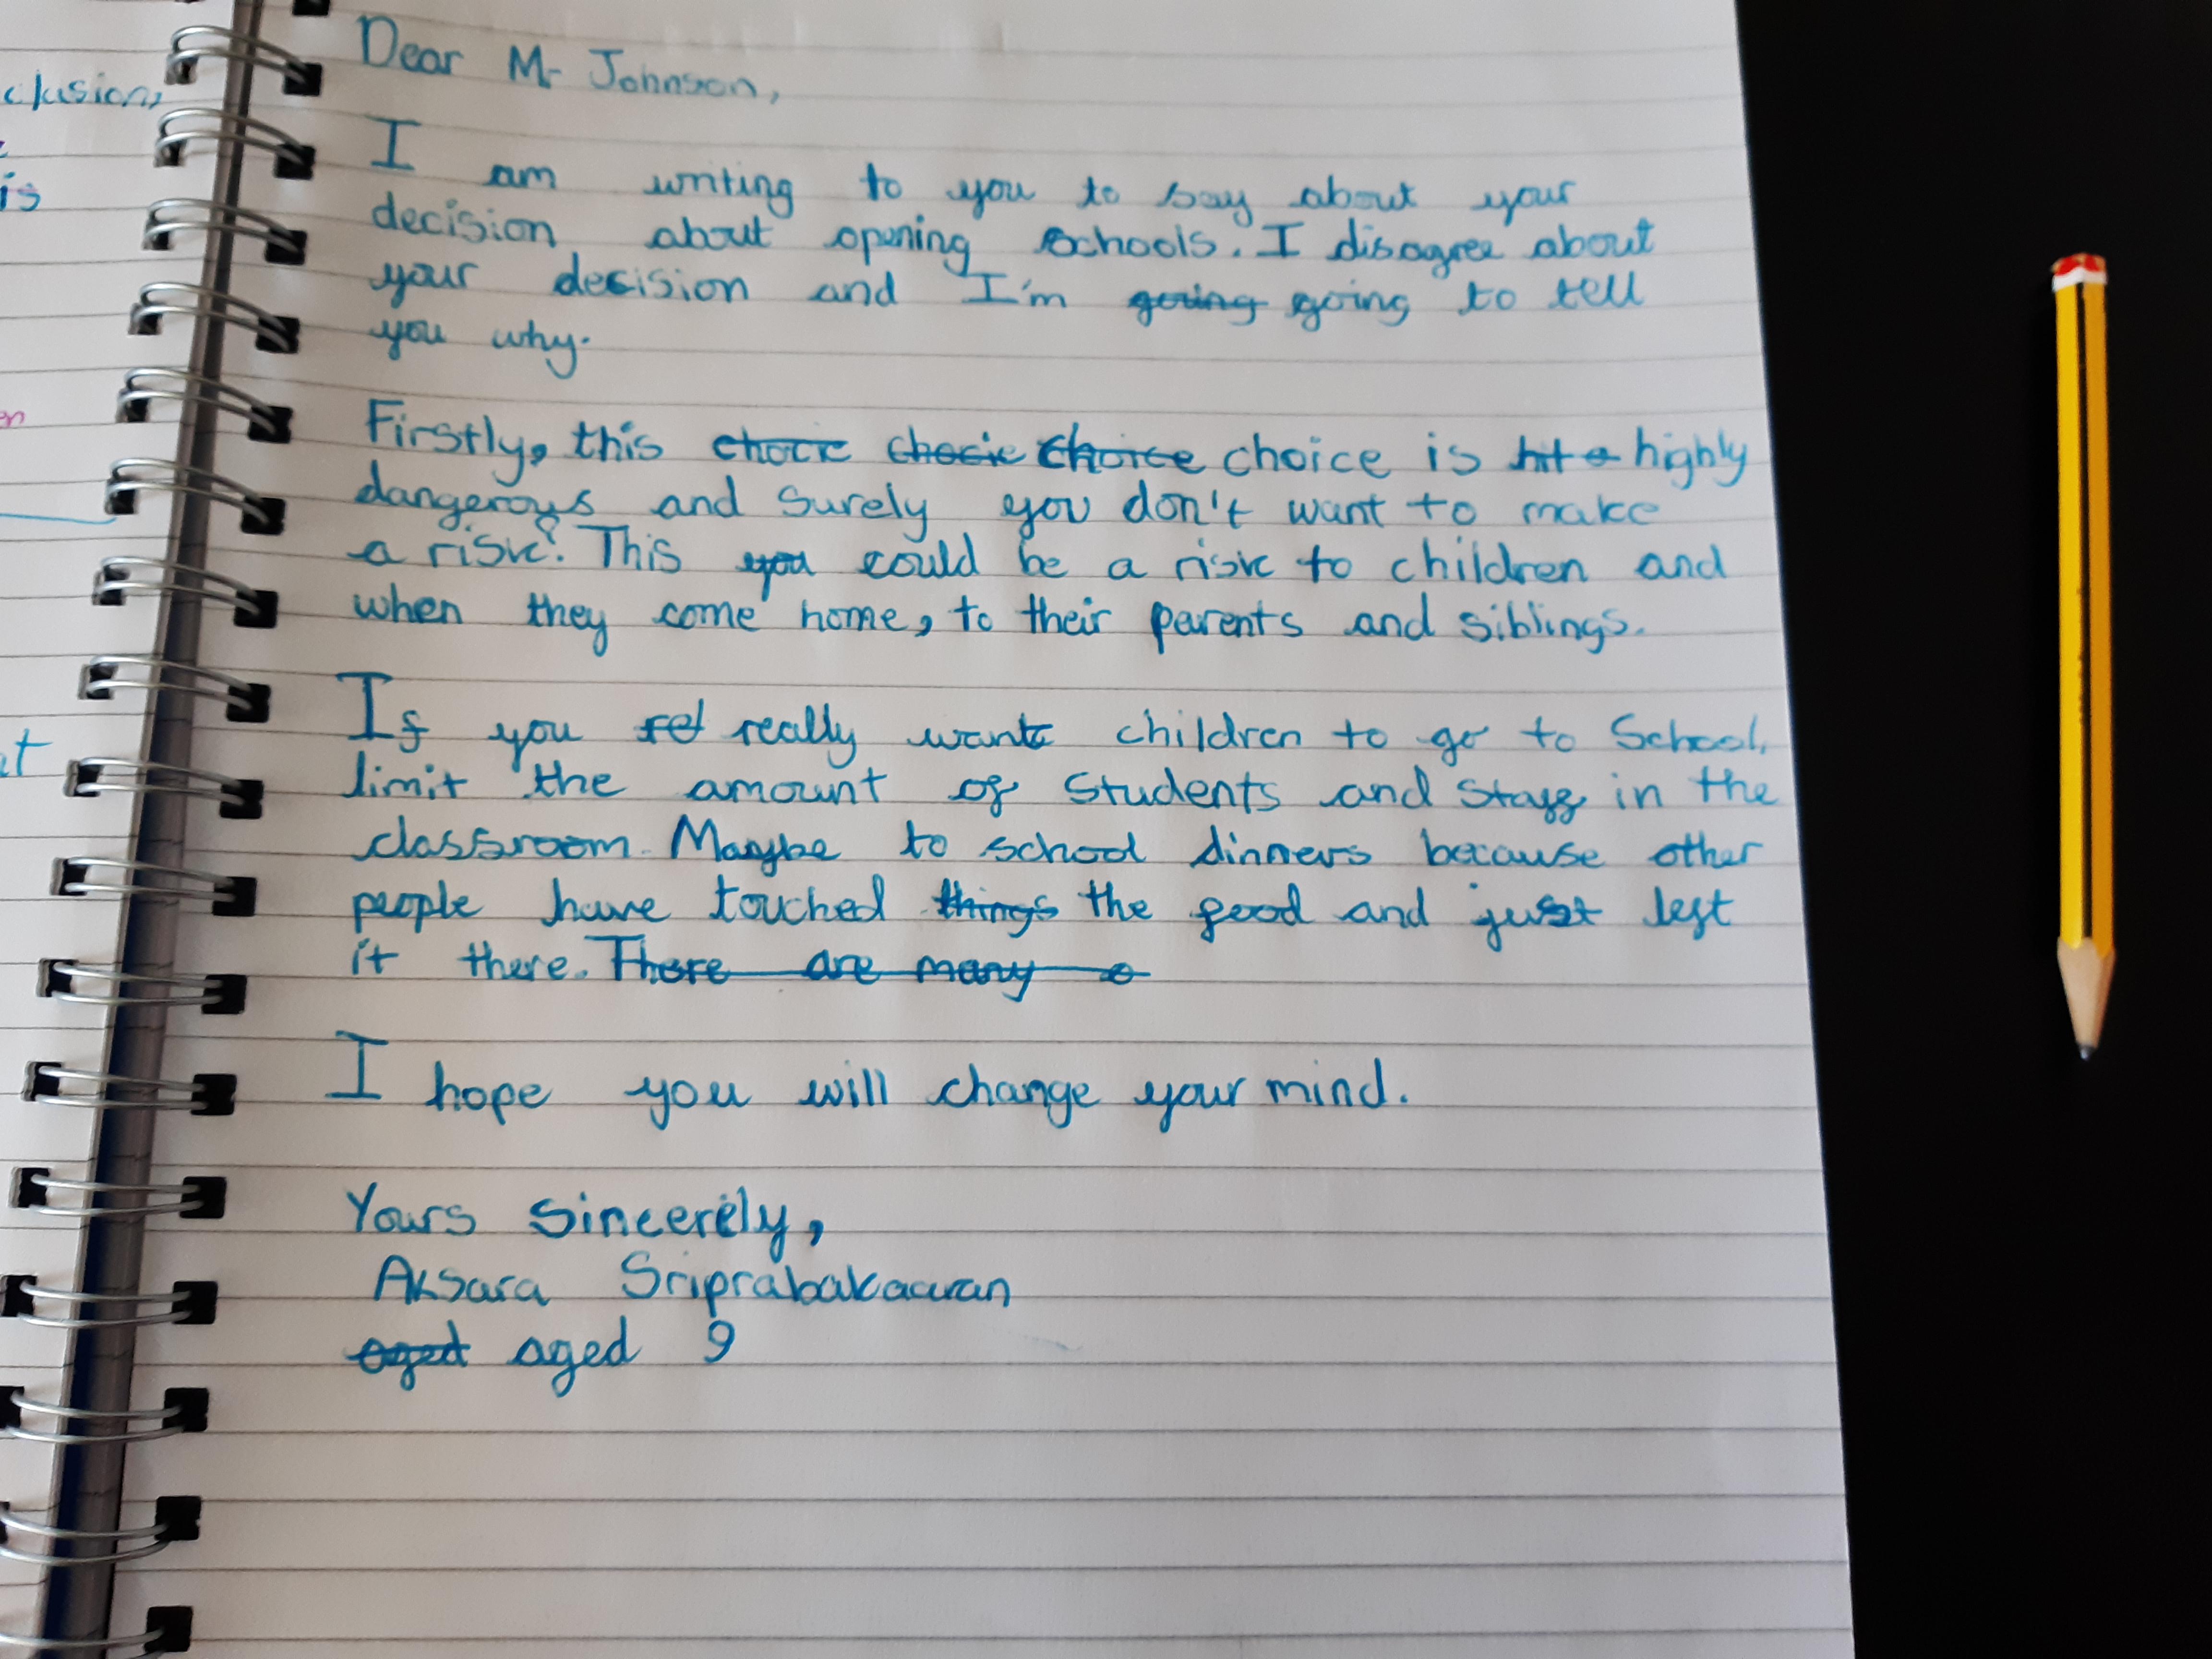 clusion,
is
en
at
Dear Mr Johnson,
I am writing to you to say about your
decision about opening schools. I disagree about
your decision and I'm going going to tell
you why.
Firstly, this chocic chocie choice choice is hit a highly
dangerous and surely you don't want to make
a risk? This you could be a risk to children and
when they come home, to their parents and siblings.
If you rel really want children to go to School,
limit the amount of students and staff in the
classroom. Maybe to school dinners because other
people have touched things the food and just left
it there. There are many o
I hope you will change your mind.
Yours sincerely,
Aksara Sriprabakaaran
aged aged 9